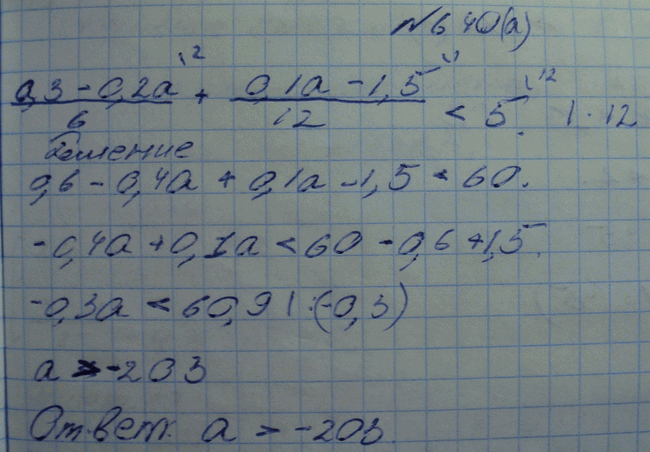 №640(а)
(0,3-0,2a)/6 \2 + (0,1a-1,5)/12 \1 < 5 \12 | · 12
Решение
0,6-0,4a+0,1a-1,5<60.
-0,4a+0,1a<60-0,6+1,5.
-0,3a<60,9 | :(-0,3)
a>-203
Ответ: a>-203.